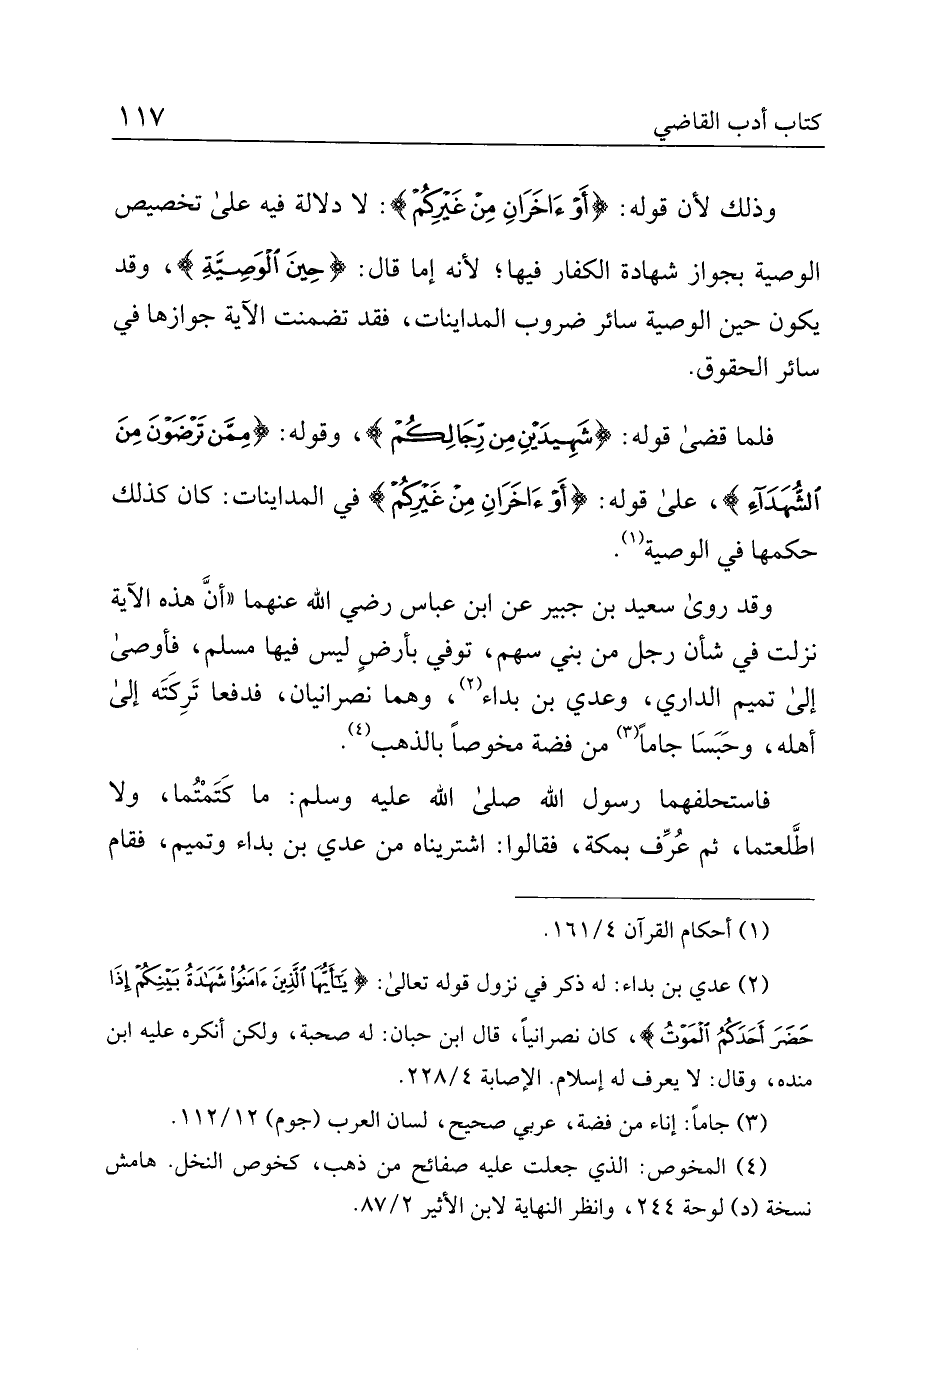 كتاب أدب القاضي ١١٧
وذلك لأن قوله: ﴿أَوْ ءَاخَرَانِ مِنْ غَيْرِكُمْ﴾: لا دلالة فيه علىٰ تخصيص
الوصية بجواز شهادة الكفار فيها؛ لأنه إما قال: ﴿حِينَ ٱلْوَصِيَّةِ﴾، وقد
يكون حين الوصية سائر ضروب المداينات، فقد تضمنت الآية جوازها في
سائر الحقوق.
فلما قضىٰ قوله: ﴿شَهِيدَيْنِ مِن رِّجَالِكُمْ﴾، وقوله: ﴿مِمَّن تَرْضَوْنَ مِنَ
ٱلشُّهَدَآءِ﴾، علىٰ قوله: ﴿أَوْ ءَاخَرَانِ مِنْ غَيْرِكُمْ﴾ في المداينات: كان كذلك
حكمها في الوصية(١).
وقد روىٰ سعيد بن جبير عن ابن عباس رضي الله عنهما «أنَّ هذه الآية
نزلت في شأن رجل من بني سهم، توفي بأرضٍ ليس فيها مسلم، فأوصىٰ
إلىٰ تميم الداري، وعدي بن بداء(٢)، وهما نصرانيان، فدفعا تَرِكَتَه إلىٰ
أهله، وحَبَسَا جاماً(٣) من فضة مخوصاً بالذهب(٤).
فاستحلفهما رسول الله صلىٰ الله عليه وسلم: ما كَتَمْتُما، ولا
اطَّلعتما، ثم عُرِّف بمكة، فقالوا: اشتريناه من عدي بن بداء وتميم، فقام
(١) أحكام القرآن ١٦١/٤.
(٢) عدي بن بداء: له ذكر في نزول قوله تعالىٰ: ﴿يَٰٓأَيُّهَا ٱلَّذِينَ ءَامَنُوا۟ شَهَٰدَةُ بَيْنِكُمْ إِذَا
حَضَرَ أَحَدَكُمُ ٱلْمَوْتُ﴾، كان نصرانياً، قال ابن حبان: له صحبة، ولكن أنكره عليه ابن
منده، وقال: لا يعرف له إسلام. الإصابة ٢٢٨/٤.
(٣) جاماً: إناء من فضة، عربي صحيح، لسان العرب (جوم) ١١٢/١٢.
(٤) المخوص: الذي جعلت عليه صفائح من ذهب، كخوص النخل. هامش
نسخة (د) لوحة ٢٤٤، وانظر النهاية لابن الأثير ٨٧/٢.